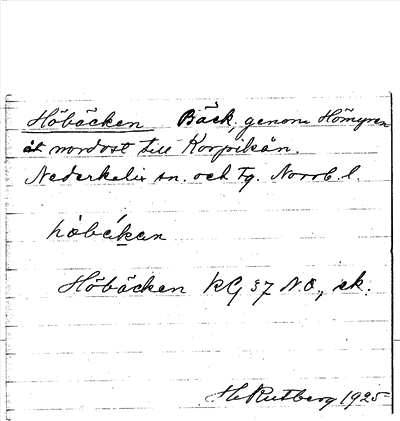 Höbäcken Bäck, genom Hömyren
åt nordost till Korpikån.
Nederkalix sn. och tg. Norrb. l.
höbäkan
Höbäcken KG 37 N.O., ek.
H. Rutberg 1925